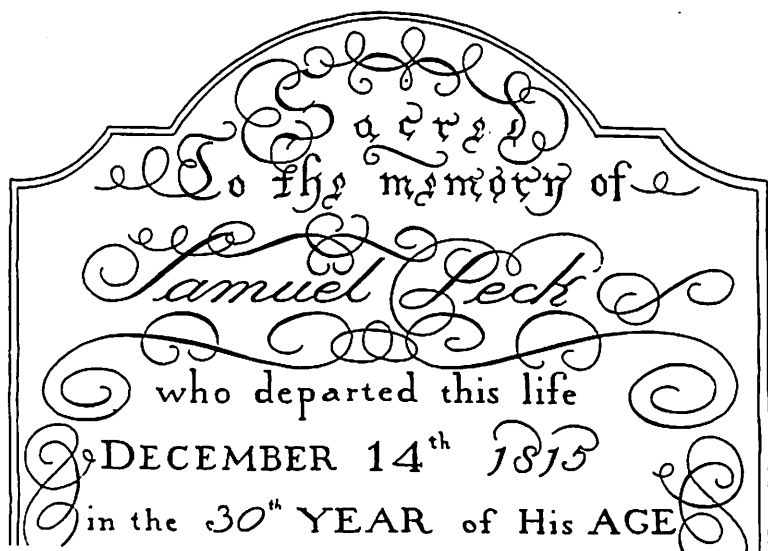 Sacred
To the memory of
Samuel Peck
who departed this life
DECEMBER 14th 1815
in the 30th YEAR of His AGE